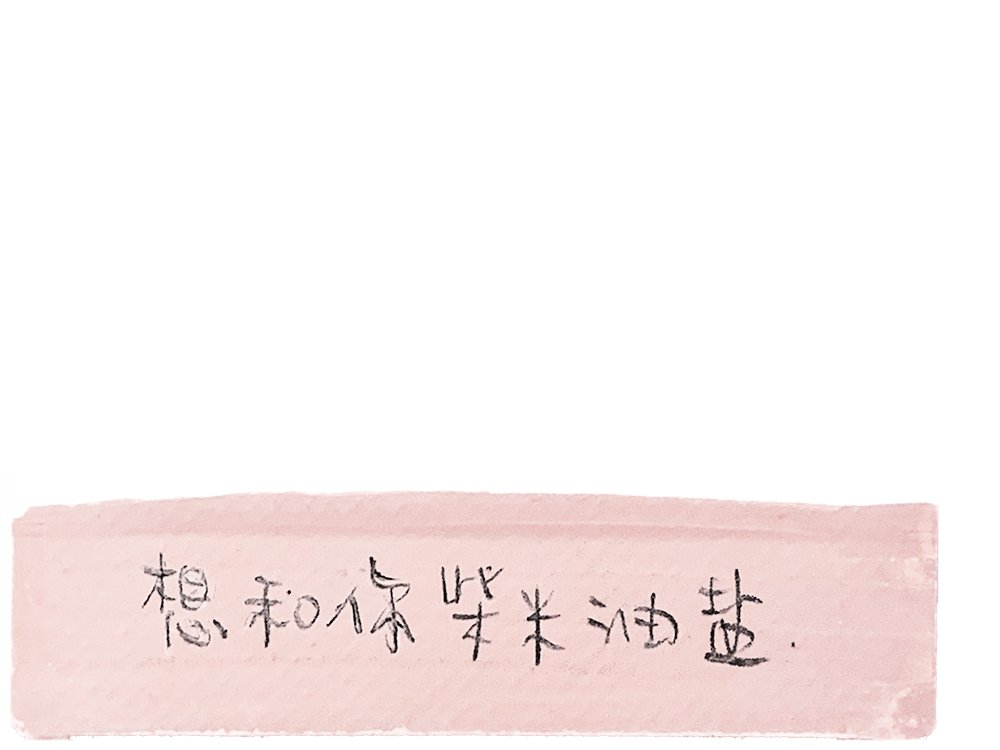 想和你柴米油盐.